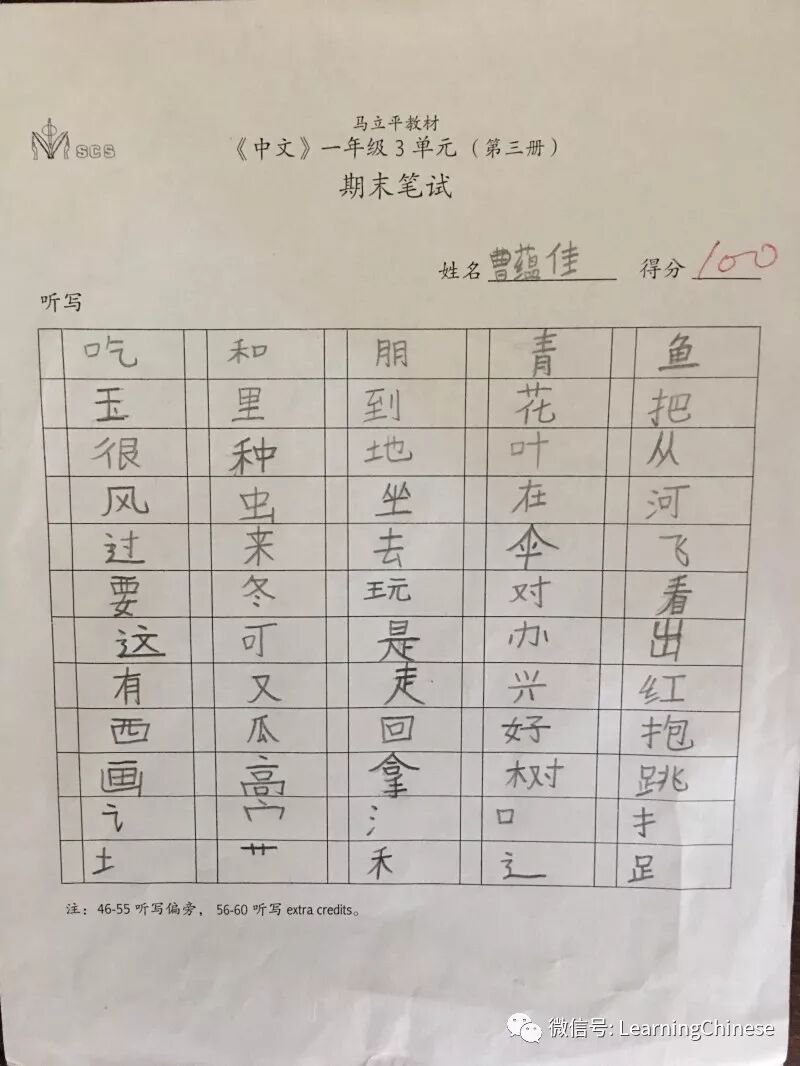 马立平教材
SCS
《中文》一年级3单元（第三册）
期末笔试
姓名 曹蕴佳 得分 100
听写
吃 和 朋 青 鱼
玉 里 到 花 把
很 种 地 叶 从
风 虫 坐 在 河
过 来 去 伞 飞
要 冬 玩 对 看
这 可 是 办 出
有 又 走 兴 红
西 瓜 回 好 抱
画 高 拿 树 跳
讠 宀 氵 口 扌
土 艹 禾 辶 足
注：46-55 听写偏旁，56-60 听写 extra credits。
微信号: LearningChinese